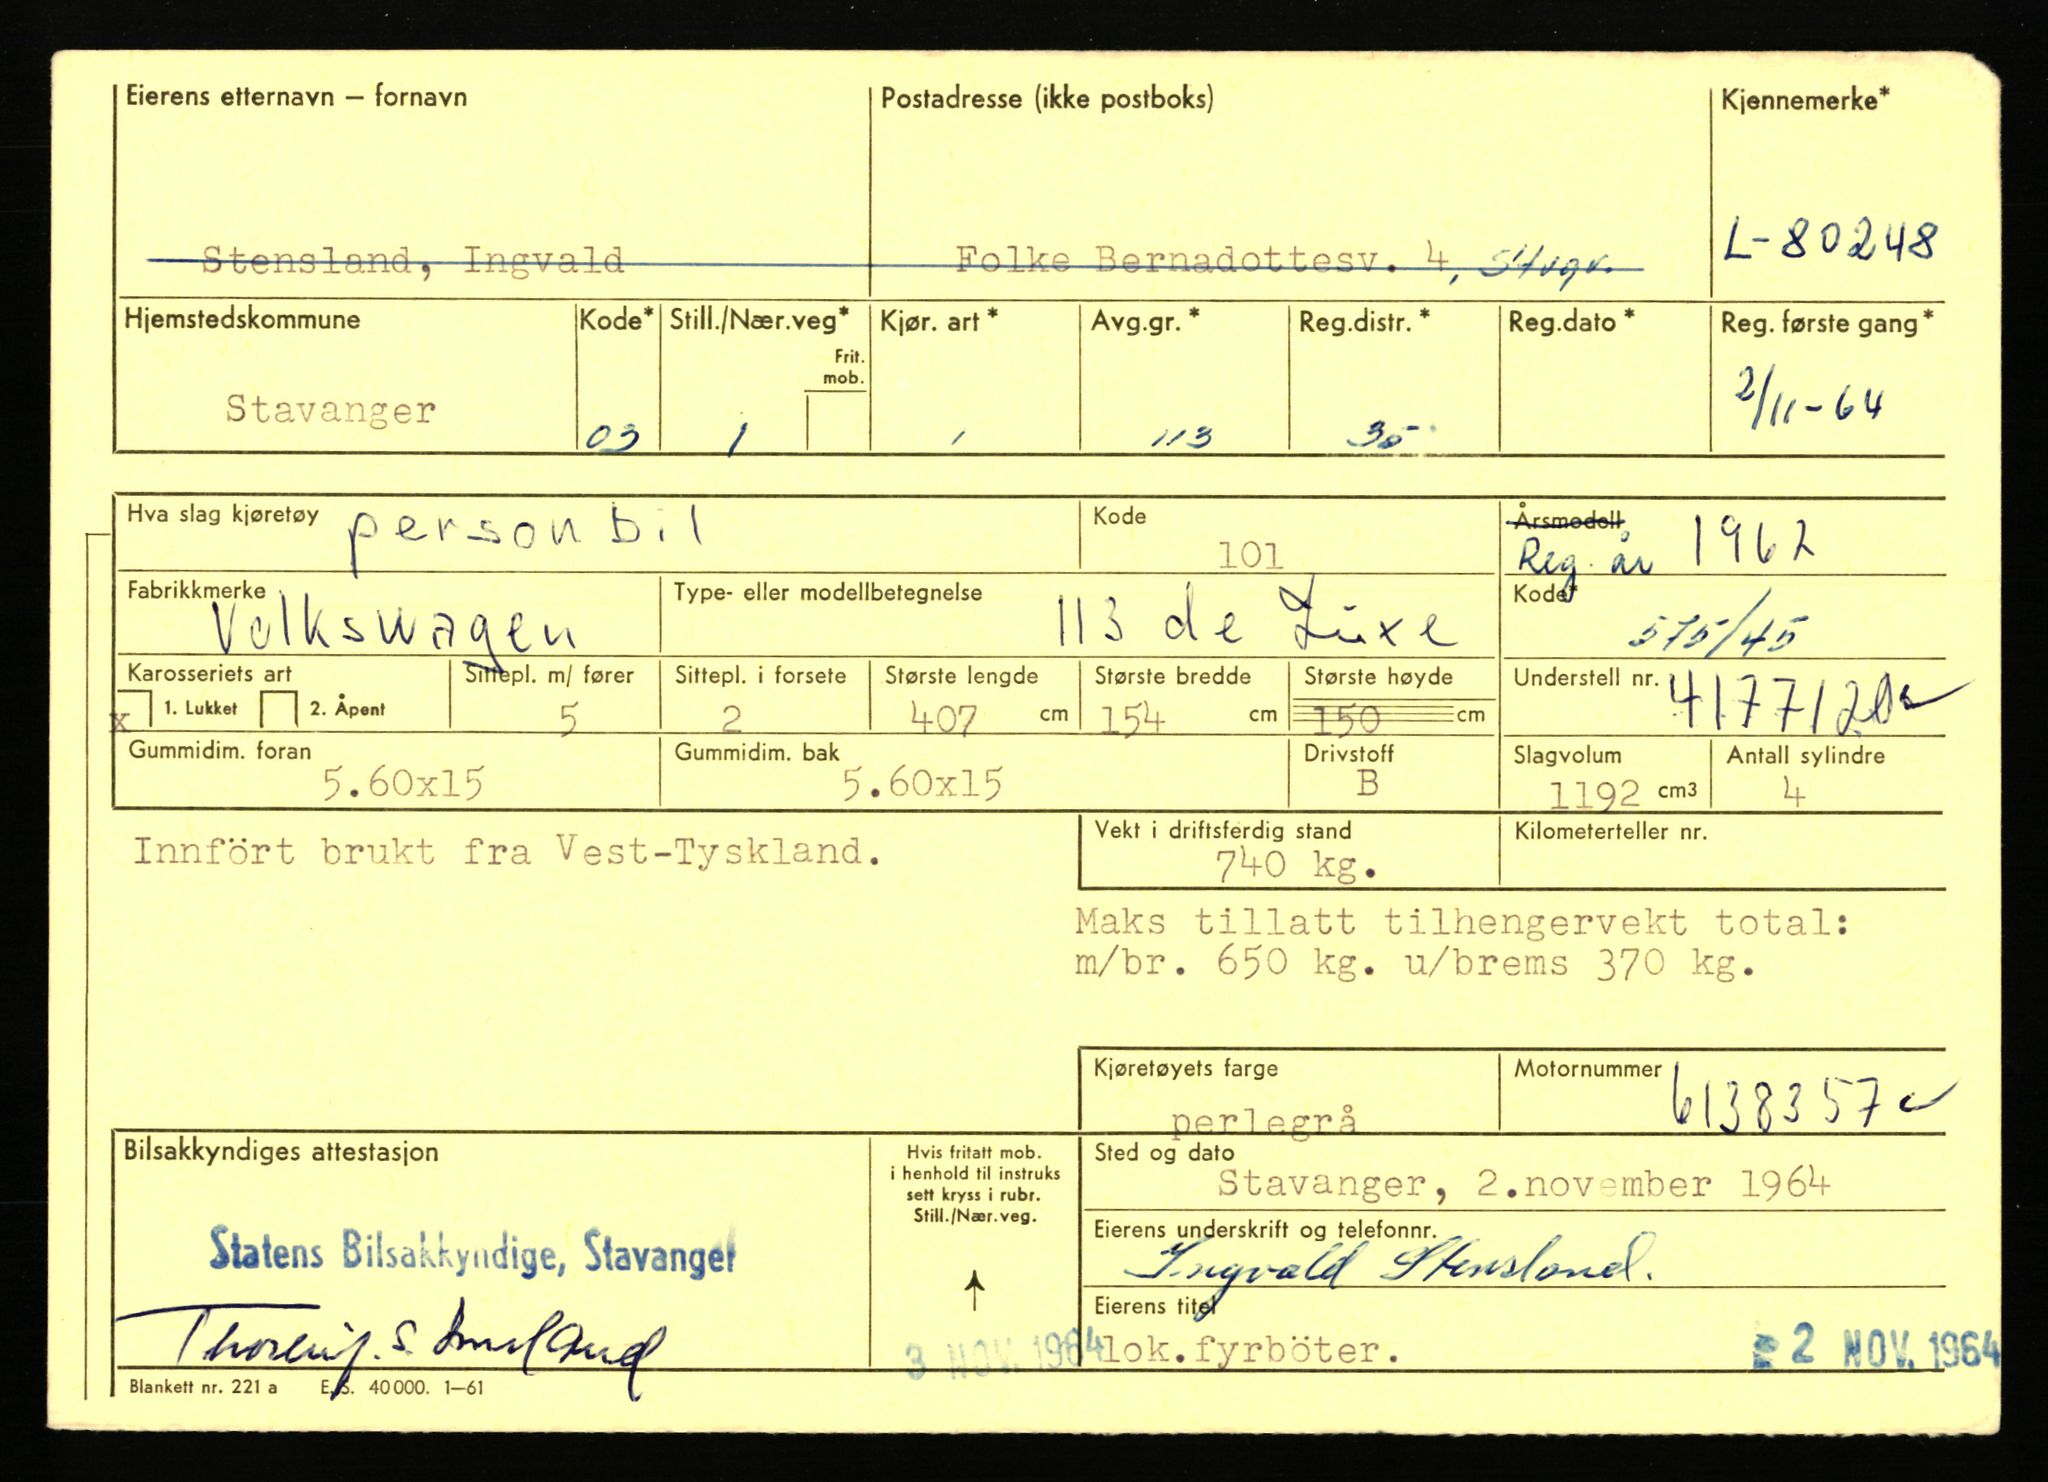 Eierens etternavn — fornavn
Postadresse (ikke postboks)
Kjennemerke*
Stensland, Ingvald
Folke Bernadottesv. 4, Stvgr.
L-80248
Hjemstedskommune
Kode*
Still./Nær.veg*
Frit.
mob.
Kjør. art *
Avg.gr. *
Reg.distr. *
Reg.dato *
Reg. første gang*
Stavanger
03
1
1
113
35
2/11-64
Hva slag kjøretøy
personbil
Kode
101
Årsmodell
Reg. år 1962
Fabrikkmerke
Volkswagen
Type- eller modellbetegnelse
113 de Luxe
Kode*
575/45
Karosseriets art
x 1. Lukket 2. Åpent
Sittepl. m/ fører
5
Sittepl. i forsete
2
Største lengde
407 cm
Største bredde
154 cm
Største høyde
150 cm
Understell nr.
Gummidim. foran
5.60x15
Gummidim. bak
5.60x15
Drivstoff
B
Slagvolum
1192 cm3
Antall sylindre
4
Innfört brukt fra Vest-Tyskland.
Vekt i driftsferdig stand
740 kg.
Kilometerteller nr.
Maks tillatt tilhengervekt total:
m/br. 650 kg. u/brems 370 kg.
Kjøretøyets farge
perlegrå
Motornummer
6138357
Bilsakkyndiges attestasjon
Statens Bilsakkyndige, Stavanger
Hvis fritatt mob.
i henhold til instruks
sett kryss i rubr.
Still./Nær.veg.
3 NOV. 1964
Sted og dato
Stavanger, 2.november 1964
Eierens underskrift og telefonnr.
Ingvald Stensland.
Eierens titel
lok.fyrböter.
2 NOV. 1964
Blankett nr. 221 a E.S. 40000. 1—61